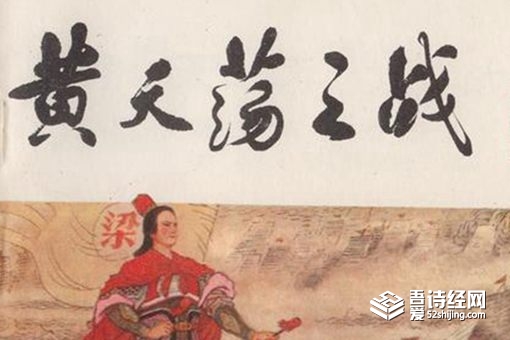 黄天荡之战
梁
吾爱诗经网
52shijing.com